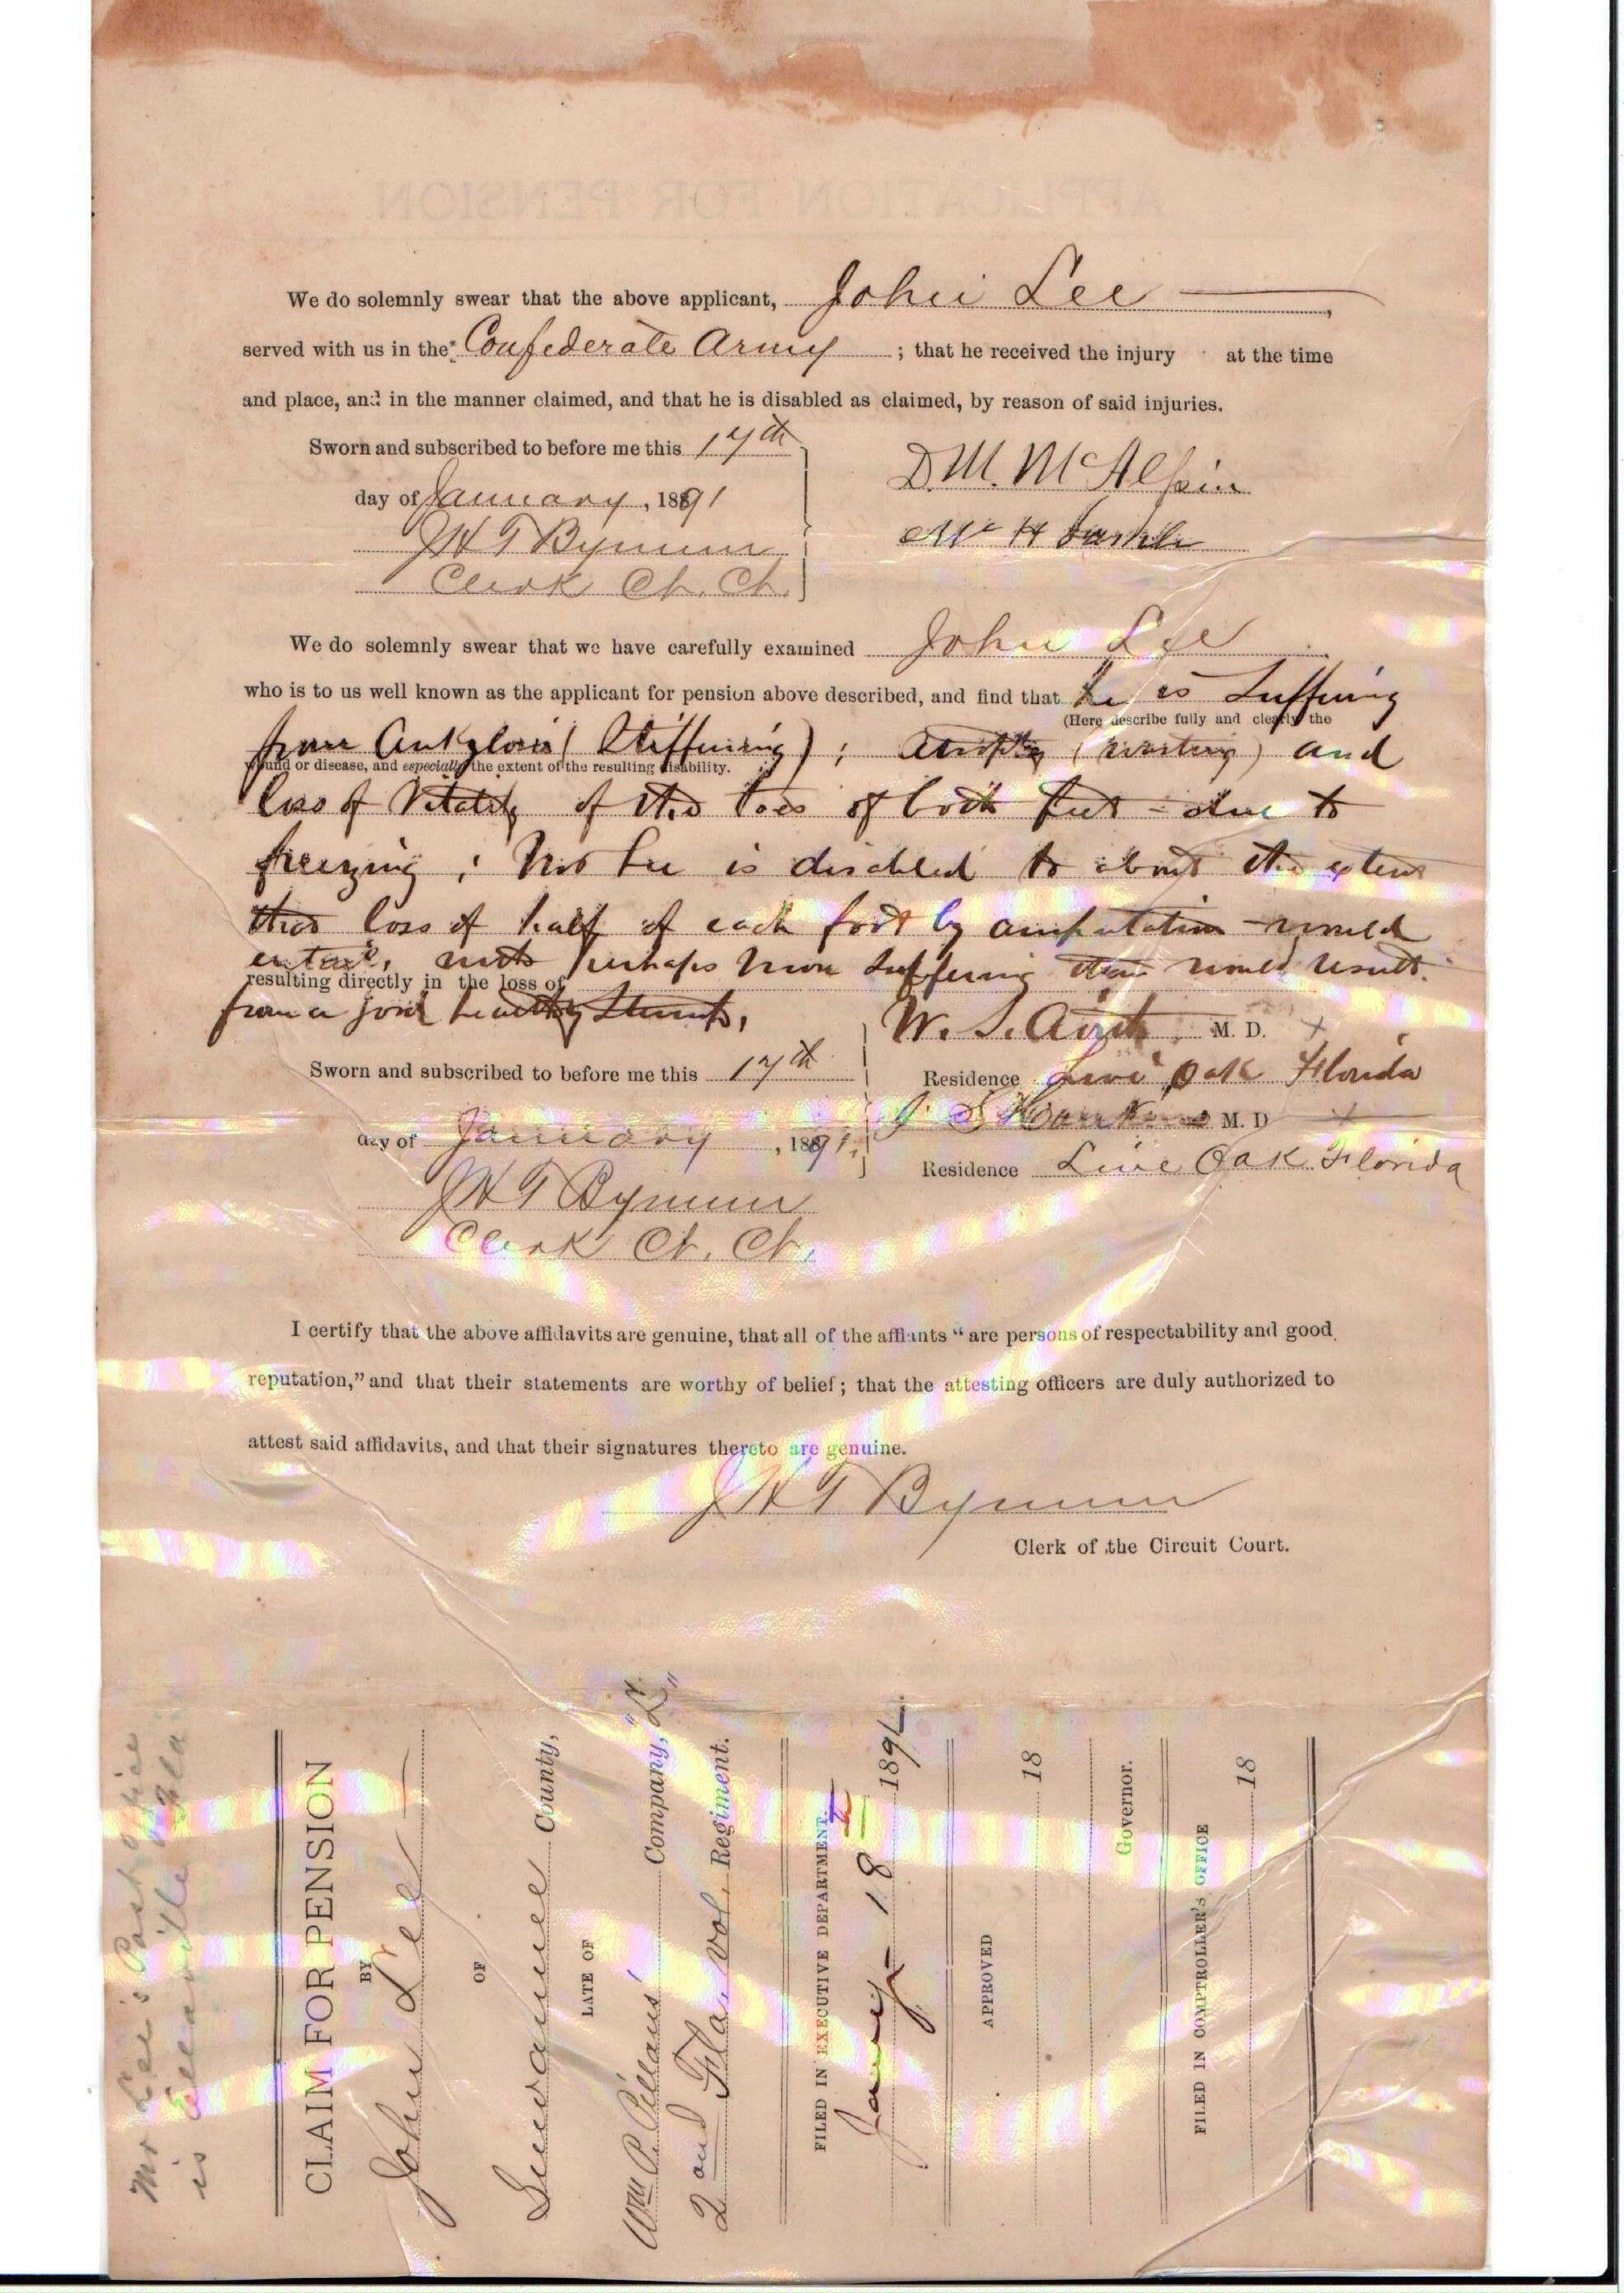 APPLICATION FOR PENSION
We do solemnly swear that the above applicant, John Lee
served with us in the Confederate Army ; that he received the injury at the time
and place, and in the manner claimed, and that he is disabled as claimed, by reason of said injuries.
Sworn and subscribed to before me this 17th
day of January, 1891
J H T Bynum
Clerk Ct. Ct.
D. M. McAlpin
We do solemnly swear that we have carefully examined John Lee
who is to us well known as the applicant for pension above described, and find that he is Suffering
(Here describe fully and clearly the
from Ankylosis (Stiffening); atrophy (wasting) and
wound or disease, and especially the extent of the resulting disability.
loss of Vitality of the toes of both feet - due to
freezing; Mr Lee is disabled to about the extent
that loss of half of each foot by amputation would
entail, with perhaps more suffering than would result
resulting directly in the loss of
from a good healthy Stump.
Sworn and subscribed to before me this 17th
day of January, 1891.
J H T Bynum
Clerk Ct. Ct.
W. S. M. D.
Residence Live Oak Florida
M. D
Residence Live Oak Florida
I certify that the above affidavits are genuine, that all of the affiants "are persons of respectability and good
reputation," and that their statements are worthy of belief; that the attesting officers are duly authorized to
attest said affidavits, and that their signatures thereto are genuine.
J H T Bynum
Clerk of the Circuit Court.
Mr Lee's Post office
is Ellaville Fla
CLAIM FOR PENSION
BY
John Lee
OF
Suwannee County,
LATE OF
Wm P. Pillans' Company,
2nd Fla. Vol. Regiment.
FILED IN EXECUTIVE DEPARTMENT.
Jany 18 189
APPROVED
18
Governor.
FILED IN COMPTROLLER'S OFFICE
18